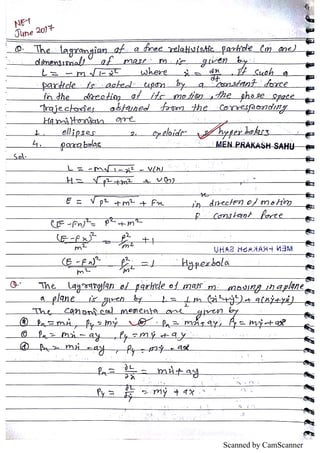 NET
June 2017
Q. The lagrangian of a free relativistic particle (in one)
dimensional of mass m is given by
L = - m √1-ẋ² where ẋ = dx/dt, if such a
particle is acted upon by a constant force
in the direction of its motion, the phase space
trajectories obtained from the corresponding
Hamiltonian are
1. ellipses 2. cycloids 3. hyperbolas
4. parabolas MEN PRAKASH SAHU
Sol.
L = -m√1-ẋ² - V(x)
H = √p²+m² + V(x)
E = √p²+m² + Fx in direction of motion
F constant force
(E-Fx)² = p²+m²
(E-Fx)²/m² = p²/m² + 1
MEN PRAKASH SAHU
(E-Fx)²/m² - p²/m² = 1 Hyperbola
Q. The Lagrangian of particle of mass m moving in a plane
a plane is given by L = 1/2 m (ẋ²+ẏ²) + a(xẏ+yẋ)
The canonical momenta are given by
Px = mẋ, Py = mẏ Px = mẋ+ay, Py = mẏ+ax
Px = mẋ - ay, Py = mẏ + ay
Px = mẋ - ay, Py = mẏ - ax
Px = ∂L/∂ẋ = mẋ+ay
Py = ∂L/∂ẏ = mẏ + ax
Scanned by CamScanner